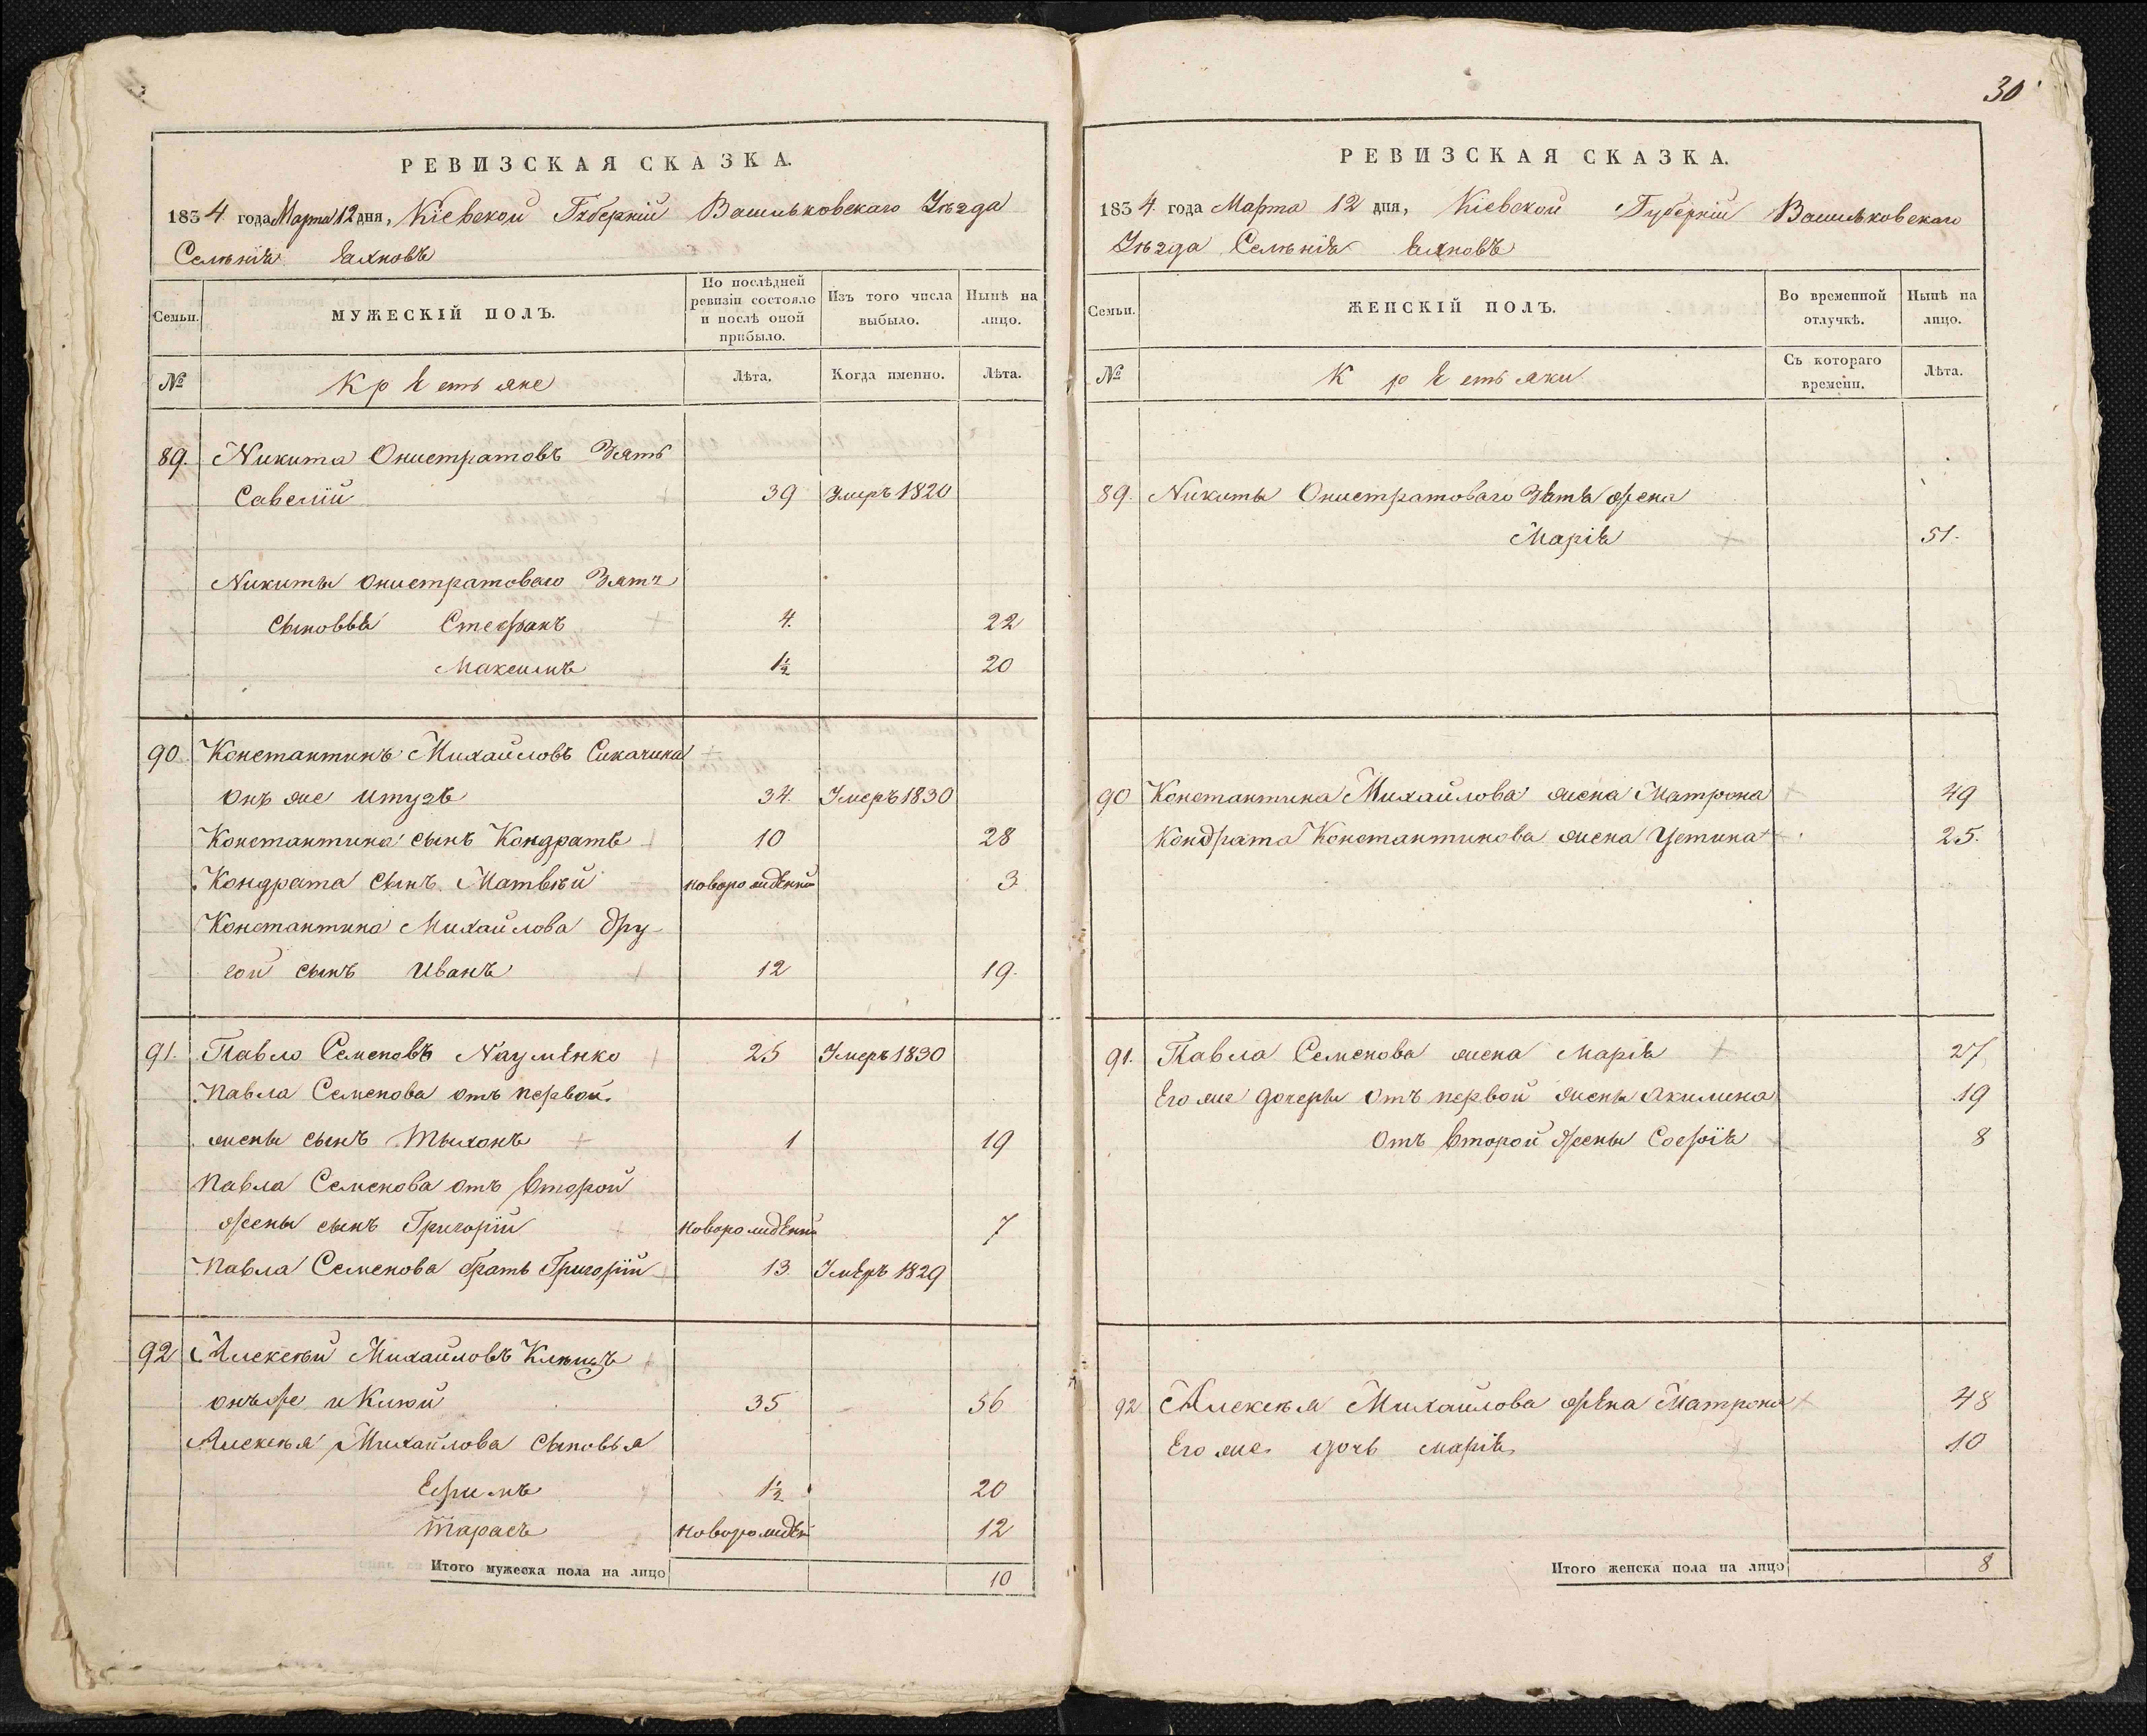 30
РЕВИЗСКАЯ СКАЗКА.
1834 года Марта 12 дня, Кіевской Губерніи Васильковскаго Уѣзда
Селѣнія
МУЖЕСКІЙ ПОЛЪ.
Семьи.
По послѣдней ревизіи состояло и послѣ оной прибыло.
Изъ того числа выбыло.
Нынѣ на лицо.
№
Крестьяне
Лѣта.
Когда именно.
Лѣта.
89. Никита Онистратовъ Зять
Савелій 39 Умеръ 1820
Никиты Онистратоваго Зятя
сыновья Стефанъ 4. 22
Максимъ 1½ 20
90. Константинъ Михайловъ
онъ же 34. Умеръ 1830
Константина сынъ Кондратъ 10 28
Кондрата сынъ Матвѣй новорожденный 3
Константина Михайлова дру-
гой сынъ Иванъ 12 19.
91. Павло Семеновъ Науменко 25 Умеръ 1830
Павла Семенова отъ первой
жены сынъ Тыхонъ 1 19
Павла Семенова отъ второй
жены сынъ Григорій новорожденный 7
Павла Семенова братъ Григорій 13. Умеръ 1829
92 Алексѣй Михайловъ
онъ же и 35 56
Алексѣя Михайлова сыновья
Ефимъ 1½ 20
Тарасъ новорожден 12
Итого мужеска пола на лицо 10
РЕВИЗСКАЯ СКАЗКА.
1834 года Марта 12 дня, Кіевской Губерніи Васильковскаго
Уѣзда Селѣнія
Семьи.
ЖЕНСКІЙ ПОЛЪ.
Во временной отлучкѣ.
Нынѣ на лицо.
№
Крестьянки
Съ котораго времени.
Лѣта.
89. Никиты Онистратоваго Зятя жена
Марія 51.
90 Константина Михайлова жена Матрона 49
Кондрата Константинова жена Устина 25.
91. Павла Семенова жена Марія 27
Его же дочеры отъ первой жены Акилина 19
отъ второй жены Софія 8
92 Алексѣя Михайлова жена Матрона 48
Его же дочь Марія 10
Итого женска пола на лицо 8